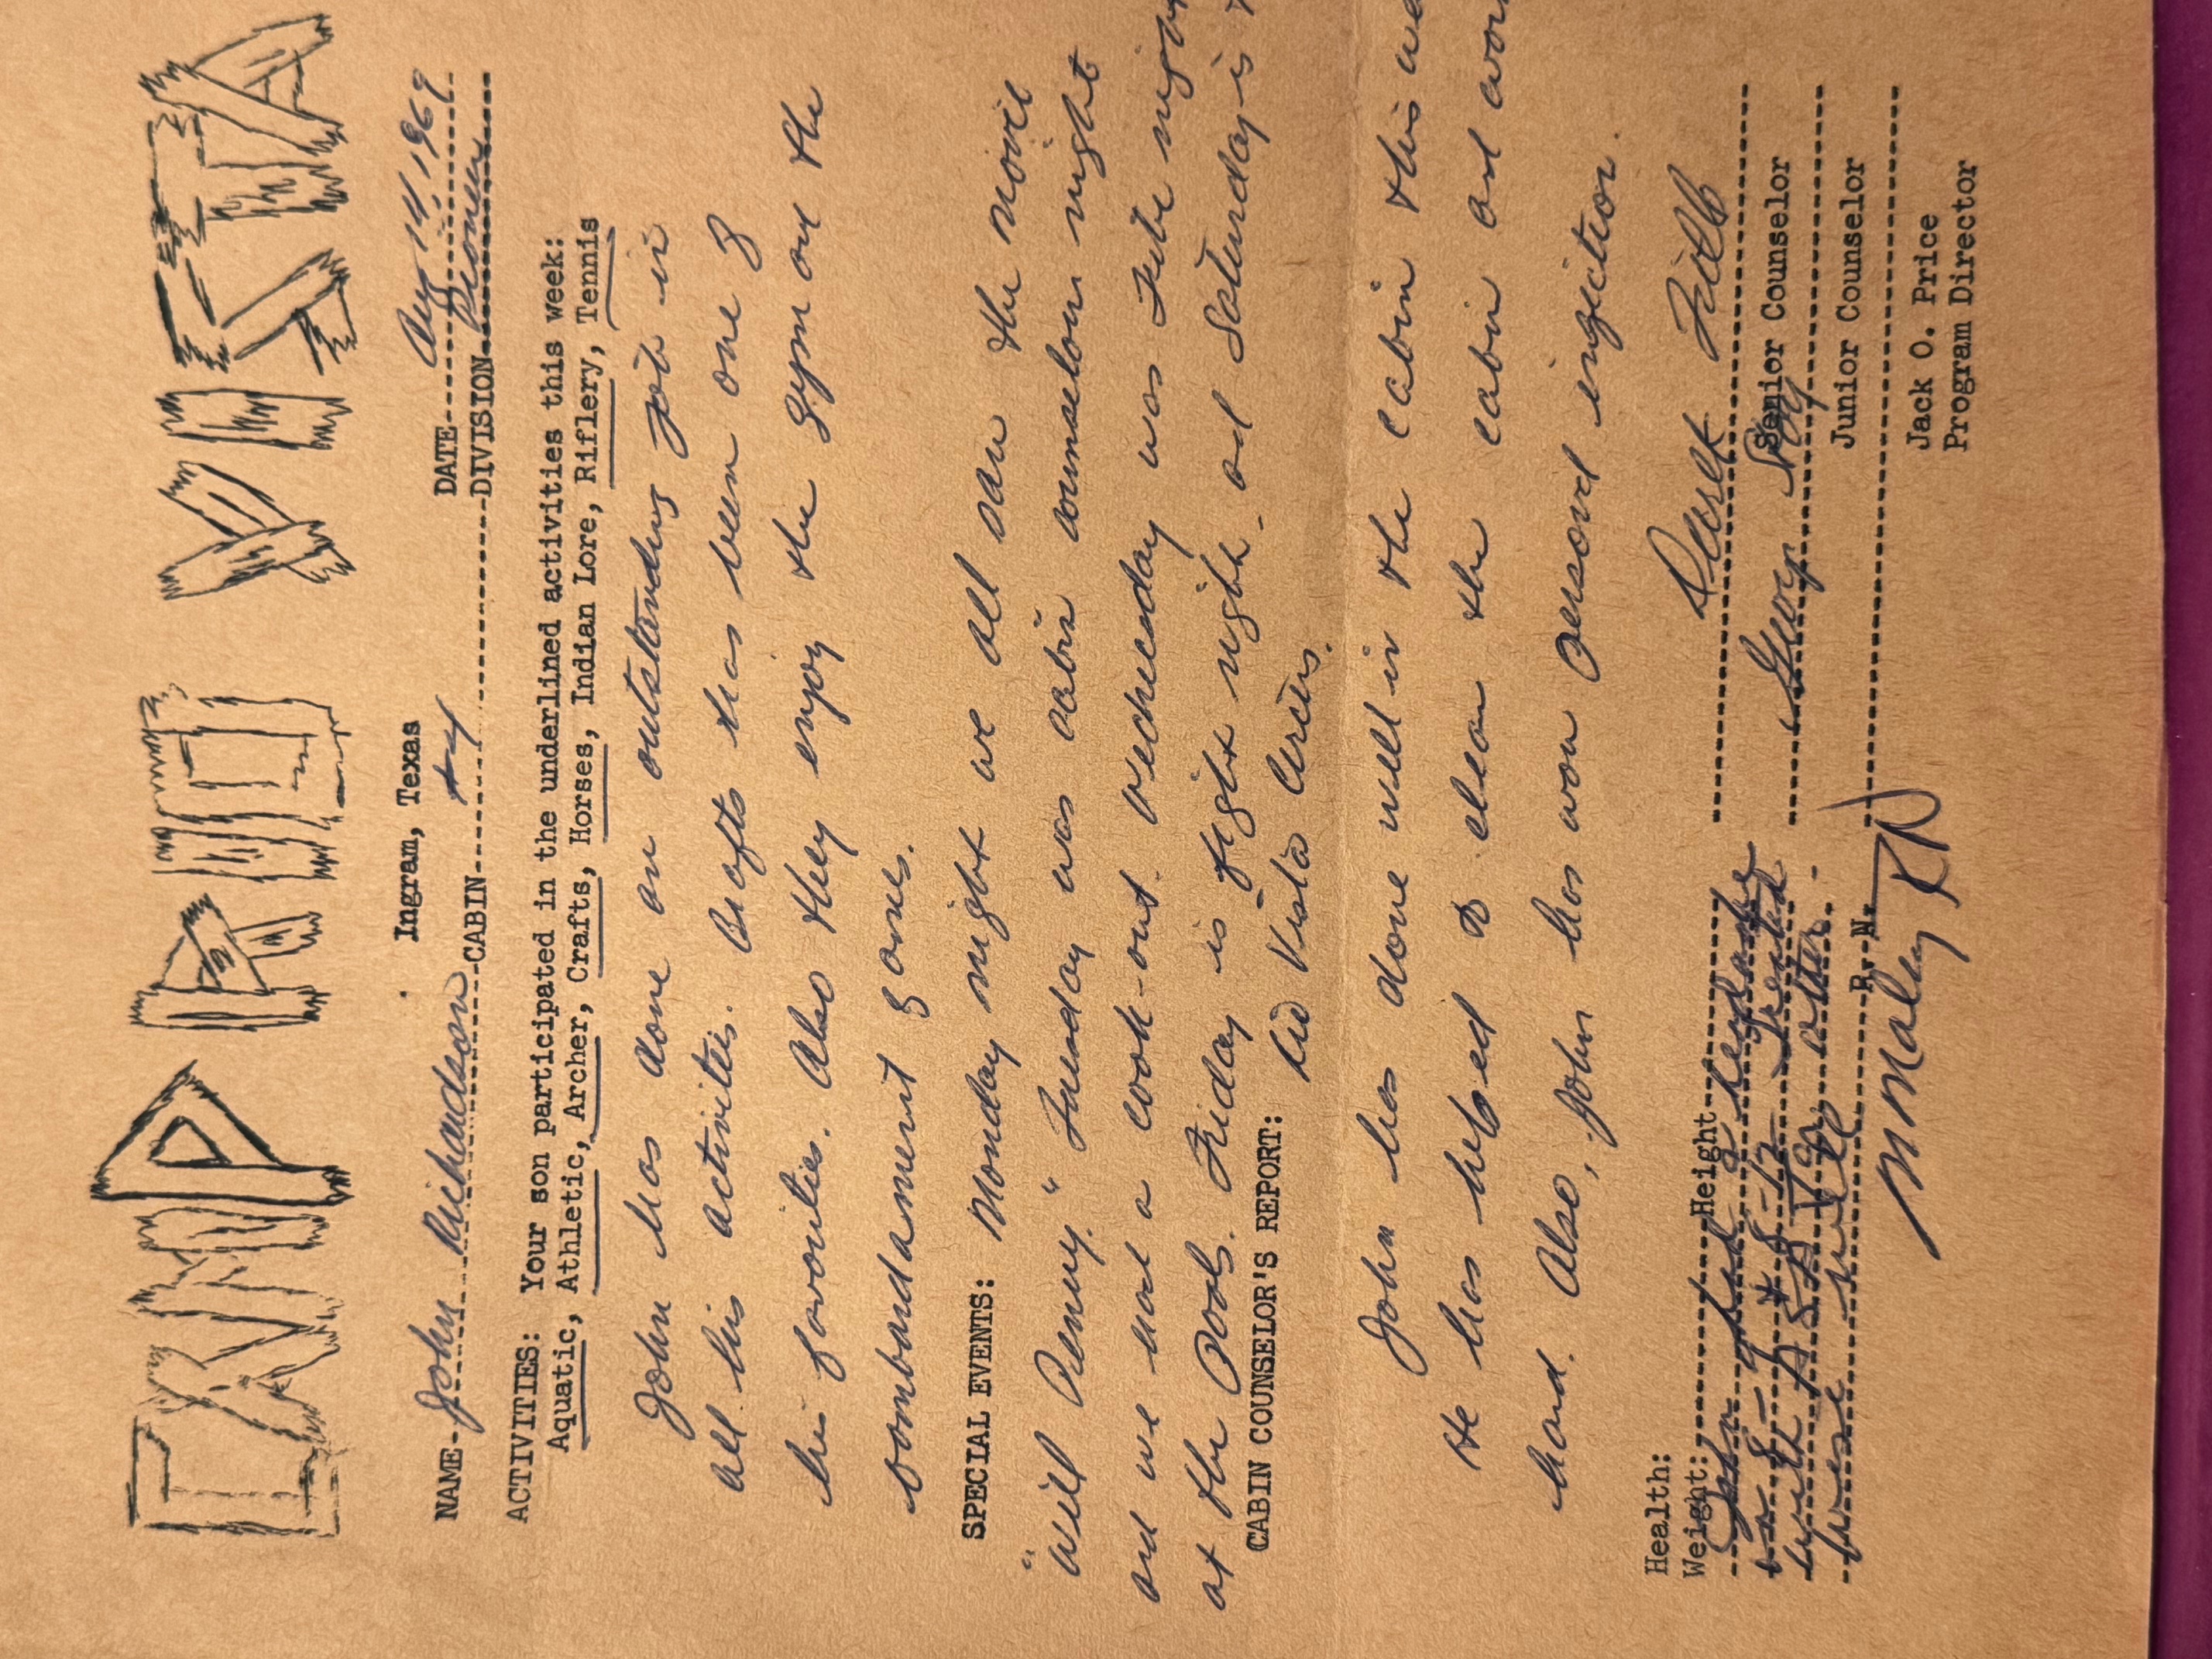 CAMP RIO VISTA
Ingram, Texas
NAME John Richardson CABIN #4 DATE Aug 14, 1969
DIVISION Pioneer
ACTIVITIES: Your son participated in the underlined activities this week:
Aquatic, Athletic, Archer, Crafts, Horses, Indian Lore, Riflery, Tennis
John has done an outstanding job in
all his activities. Crafts has been one of
his favorities. Also they enjoy the gym and the
bombardament games.
SPECIAL EVENTS: Monday night we all saw the movie
"Will Penny." Tuesday was cabin counselour night
and we had a cook-out. Wednesday was Fite night
at the Pools. Friday is fight night. and Saturday is
CABIN COUNSELOR'S REPORT: Rio Vista Circus.
John has done well in the cabin this
He has helped to clean the cabin and
hard. Also, John has won personal inspection.
Health:
Weight: Height
John had a headache
on 8-12 - Treated
with ASA
fine
R. N.
M Maley RN
Derek
Senior Counselor
George
Junior Counselor
Jack O. Price
Program Director